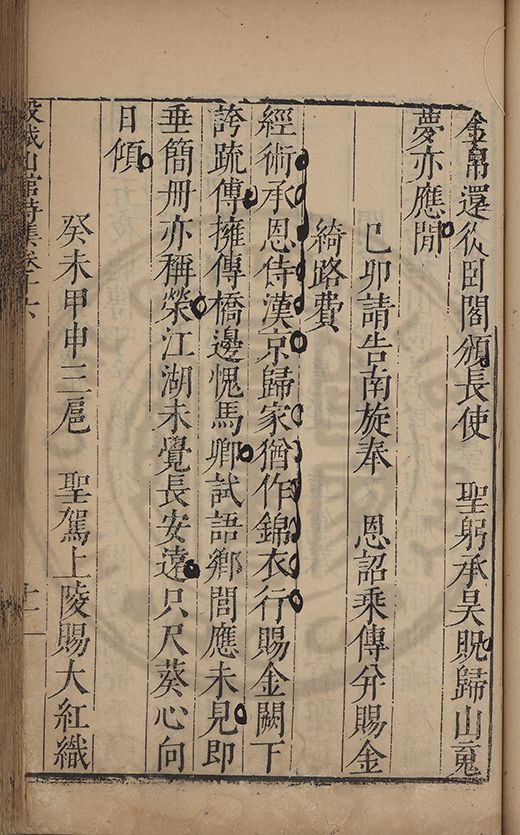 金帛還从卧閣頒長使　聖躬承昊貺歸山䰟
夢亦應閒
己卯請告南旋奉　恩詔乘傳并賜金
綺路費
經術承恩侍漢京歸家猶作錦衣行賜金闕下
誇疏傅擁傳橋邊愧馬卿試語鄉閭應未見即
垂簡冊亦稱榮江湖未覺長安遠只尺葵心向
日傾
癸未甲申三扈　聖駕上陵賜大紅織
穀城山館詩集卷十六